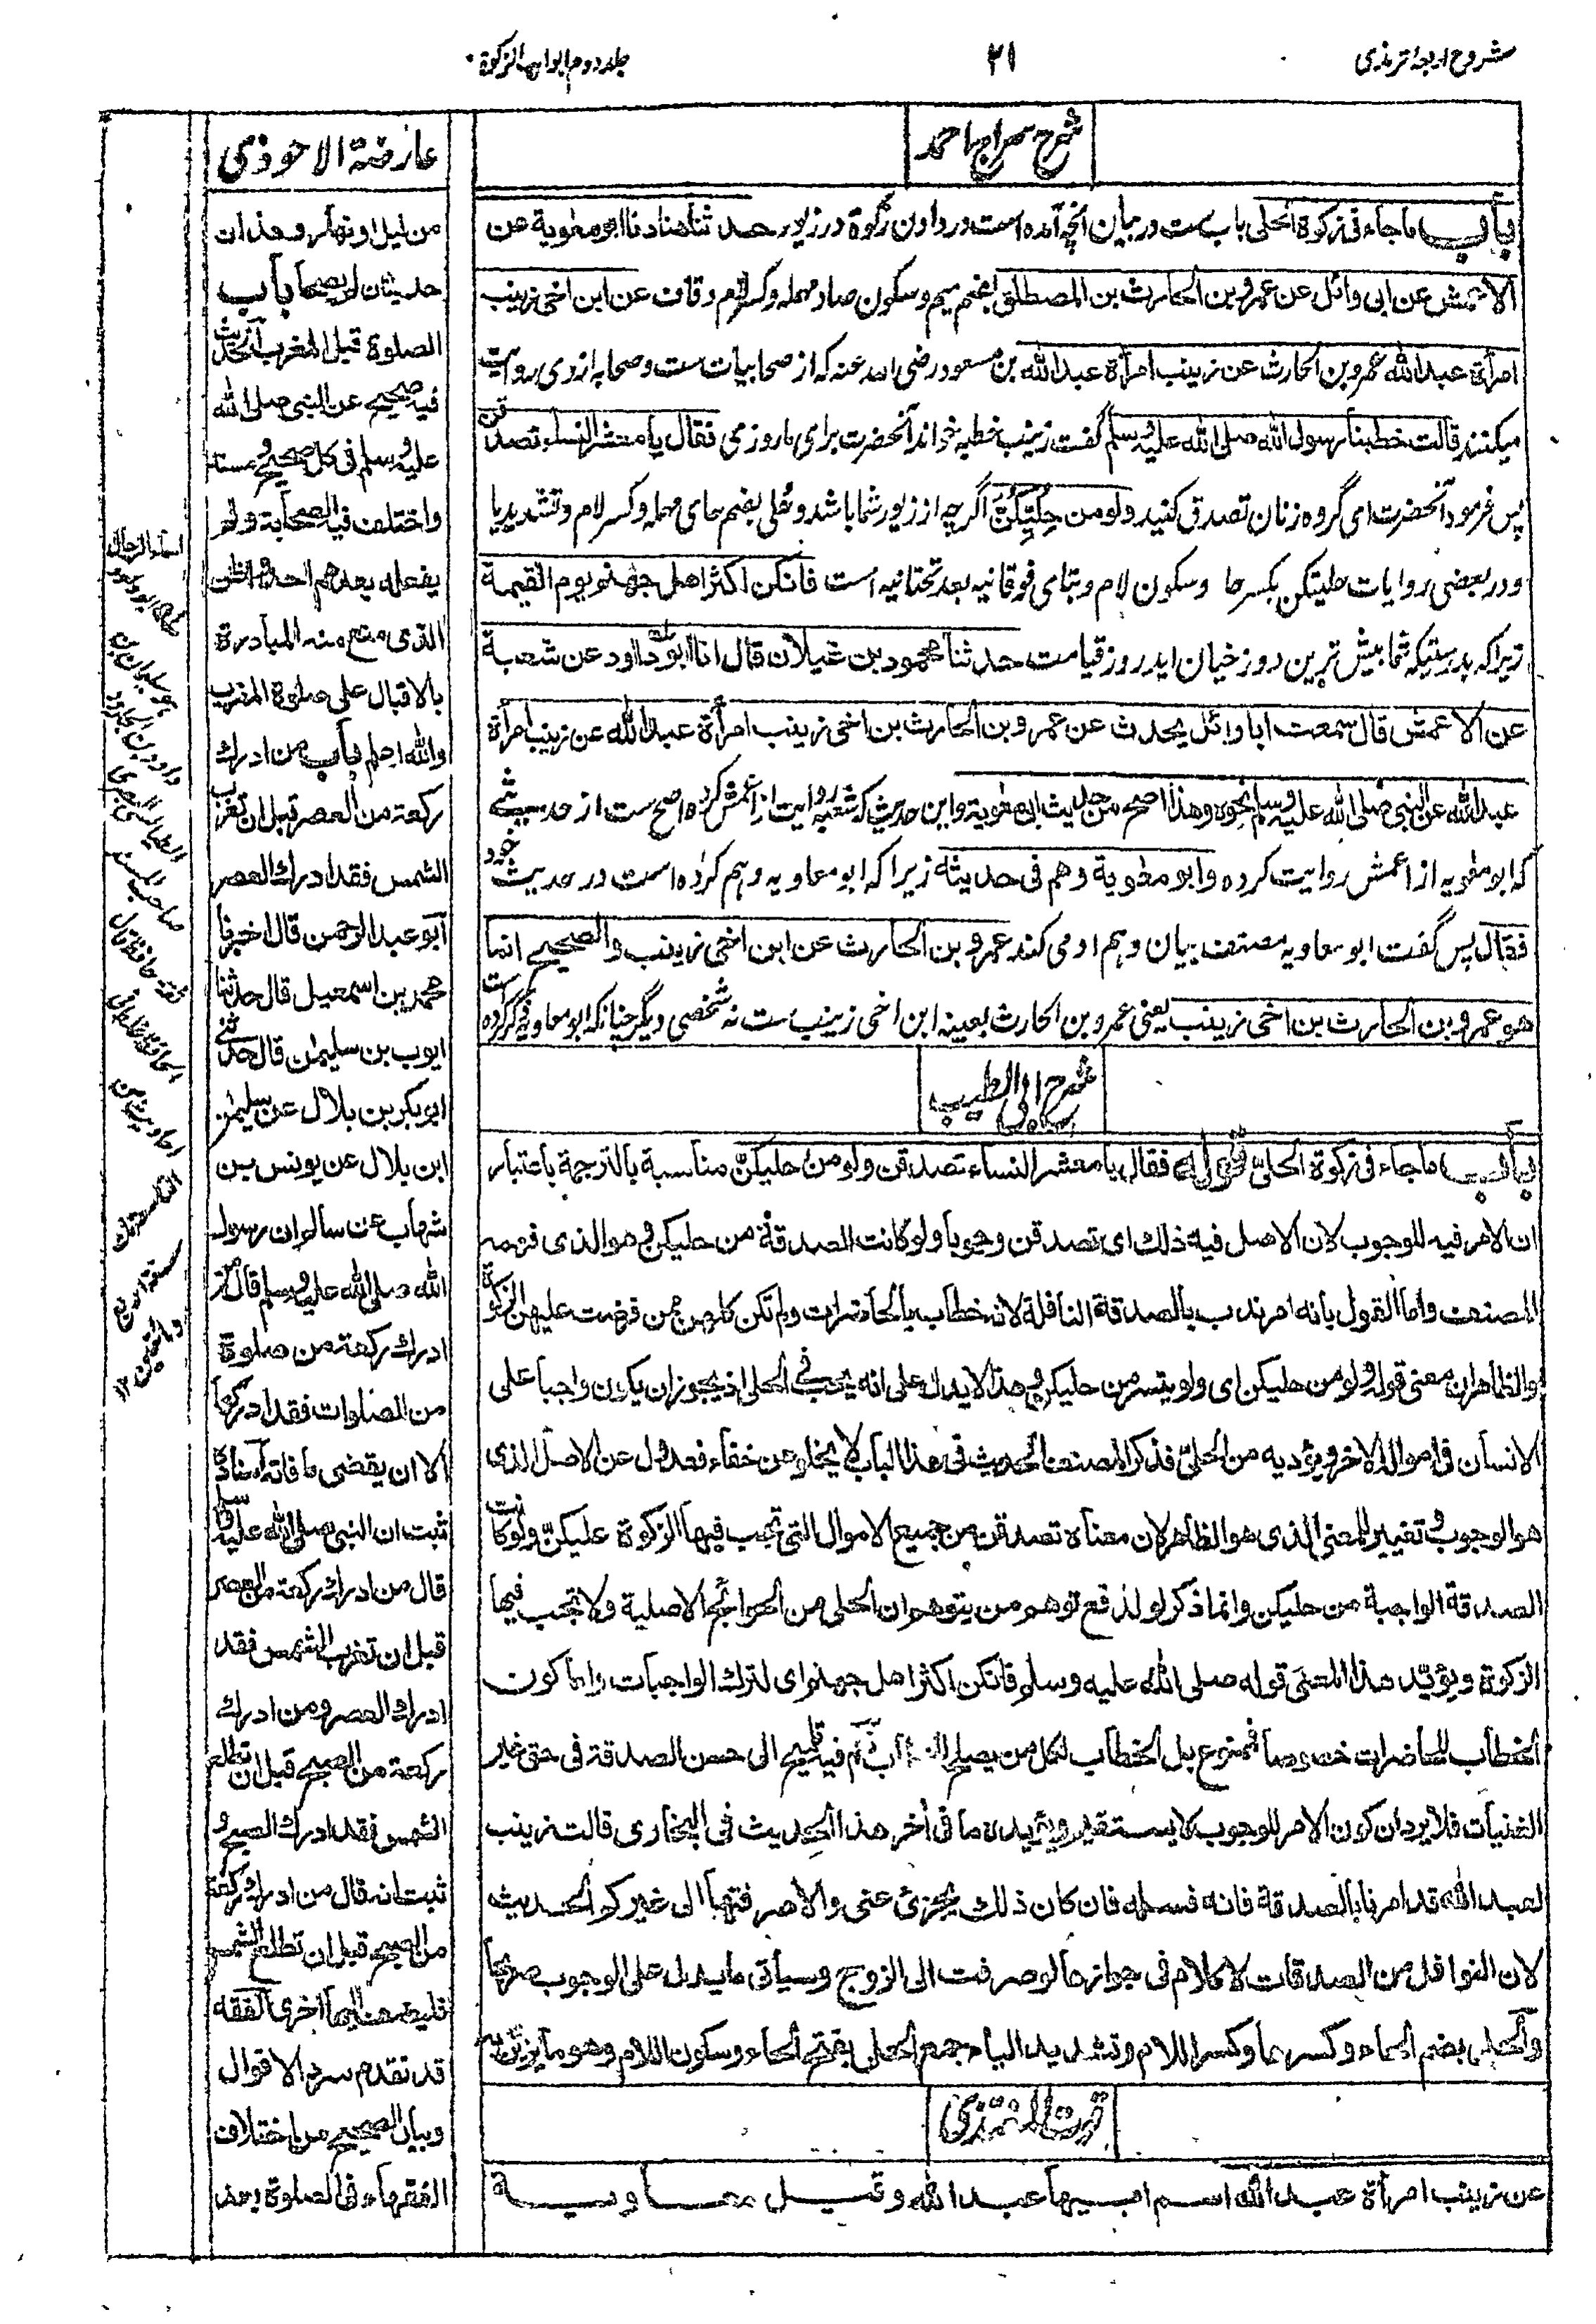 شروح اربعۀ ترمذی
۲۱
جلد دوم ابواب الزکوة
شرح سراج احمد
باب ماجاء فی زکوة الحلی باب ست در بیان آنچه آمده است در دادن زکوة در زیور حدثنا هناد نا ابو معویة عن
الاعمش عن ابی وائل عن عمرو بن الحارث بن المصطلق بضم میم وسکون صاد مهمله وکسر لام وقاف عن ابن اخی زینب
امرأة عبد الله عمرو بن الحارث عن زینب امرأة عبد الله بن مسعود رضی الله عنه که از صحابیات ست وصحابه از وی روایت
میکنند قالت خطبنا رسول الله صلی الله علیه وسلم گفت زینب خطبه خواند آنحضرت برای ما روزی فقال یا معشر النساء تصدقن
پس فرمود آنحضرت ای گروه زنان تصدق کنید ولو من حلیکن اگرچه از زیور شما باشد وحلی بضم حای مهمله وکسر لام وتشدید یا
ودر بعضی روایات حلیتکن بکسر حا وسکون لام وبتای فوقانیه بعد تحتانیه است فانکن اکثر اهل جهنم یوم القیمة
زیرا که بدرستیکه شما بیش ترین دوزخیان اید روز قیامت حدثنا محمود بن غیلان قال انا ابو داود عن شعبة
عن الاعمش قال سمعت ابا وائل یحدث عن عمرو بن الحارث بن اخی زینب امرأة عبد الله عن زینب امرأة
عبد الله عن النبی صلی الله علیه وسلم نحوه وهذا اصح من حدیث ابی معویة واین حدیث که شعبه روایت از اعمش کرده اصح ست از حدیثی
که ابو معویه از اعمش روایت کرده وابو معویة وهم فی حدیثه زیرا که ابو معاویه وهم کرده است در حدیث خود
فقال پس گفت ابو معاویه مصنف بیان وهم او می کند عمرو بن الحارث عن ابن اخی زینب والصحیح انما
هو عمرو بن الحارث بن اخی زینب یعنی عمرو بن الحارث بعینه ابن اخی زینب ست نه شخصی دیگر چنانکه ابو معاویه ذکر کرده است
شرح ابی الطیب
باب ماجاء فی زکوة الحلی قوله فقال یا معشر النساء تصدقن ولو من حلیکن مناسبة بالترجمة باعتبار
ان الامر فیه للوجوب لان الاصل فیه ذلك ای تصدقن وجوبا ولو کانت الصدقة من حلیکن وهو الذی فهمه
المصنف واما القول بانه امر ندب بالصدقة النافلة لانه خطاب بالحاضرات ولم تکن کلهن ممن فرضت علیهن الزکوة
والظاهر ان معنی قوله ولو من حلیکن ای ولو یتسر من حلیکن وهذا لا یدل علی انه یجب فی الحلی اذ یجوز ان یکون واجبا علی
الانسان فی امواله الاخر ویؤدیه من الحلی فذکر المصنف الحدیث فی هذا الباب لا یخلو عن خفاء فعدول عن الاصل الذی
هو الوجوب وتغییر للمعنی الذی هو الظاهر لان معناه تصدقن من جمیع الاموال التی تجب فیها الزکوة علیکن ولو کانت
الصدقة الواجبة من حلیکن وانما ذکر لو لدفع توهم من یتوهم ان الحلی من الحوائج الاصلیة ولا تجب فیها
الزکوة ویؤید هذا المعنی قوله صلی الله علیه وسلم فانکن اکثر اهل جهنم ای لترك الواجبات واما کون
الخطاب للحاضرات خصوصا فممنوع بل الخطاب لکل من یصلح للخطاب نعم فیه تلمیح الی حسن الصدقة فی حق غیر
الغنیات فلا یرد ان کون الامر للوجوب لا یستقیم ویؤیده ما فی أخر هذا الحدیث فی البخاری قالت زینب
لعبد الله قد امرنا بالصدقة فاته فسئله فان کان ذلك یجزئ عنی والا صرفتها الی غیرکم الحدیث
لان النوافل من الصدقات لا کلام فی جوازها لو صرفت الی الزوج وسیأتی ما یدل علی الوجوب صریحا
والحلی بضم الحاء وکسرها وکسر اللام وتشدید الیاء جمع الحلی بفتح الحاء وسکون اللام وهو ما یزین به
قوت المغتذی
عن زینب امرأة عبد الله اسم ابیها عبد الله وقیل معاویة
عارضة الاحوذی
من لیل او نهار وهذان
حدیثان لم یصحا باب
الصلوة قبل المغرب الحدیث
فیه صحیح عن النبی صلی الله
علیه وسلم فی کل صحیح ومسند
واختلف فیه الصحابة ولم
یفعله بعدهم احد واظن
الذی منع منه المبادرة
بالاقبال علی صلوة المغرب
والله اعلم باب من ادرك
رکعة من العصر قبل ان تغرب
الشمس فقد ادرك العصر
ابو عبد الرحمن قال اخبرنا
محمد بن اسمعیل قال حدثنا
ایوب بن سلیمن قال حدثنی
ابو بکر بن بلال عن سلیمن
ابن بلال عن یونس بن
شهاب عن سالم ان رسول
الله صلی الله علیه وسلم قال من
ادرك رکعة من صلوة
من الصلوات فقد ادرکها
الا ان یقضی ما فاته اسناده
ثبت ان النبی صلی الله علیه وسلم
قال من ادرك رکعة من العصر
قبل ان تغرب الشمس فقد
ادرك العصر ومن ادرك
رکعة من الصبح قبل ان تطلع
الشمس فقد ادرك الصبح و
ثبت انه قال من ادرك رکعة
من الصبح قبل ان تطلع الشمس
فلیضف الیها اخری الفقه
قد تقدم سرد الاقوال
وبیان الصحیح من اختلاف
الفقهاء فی الصلوة بعد
اسماء الرجال